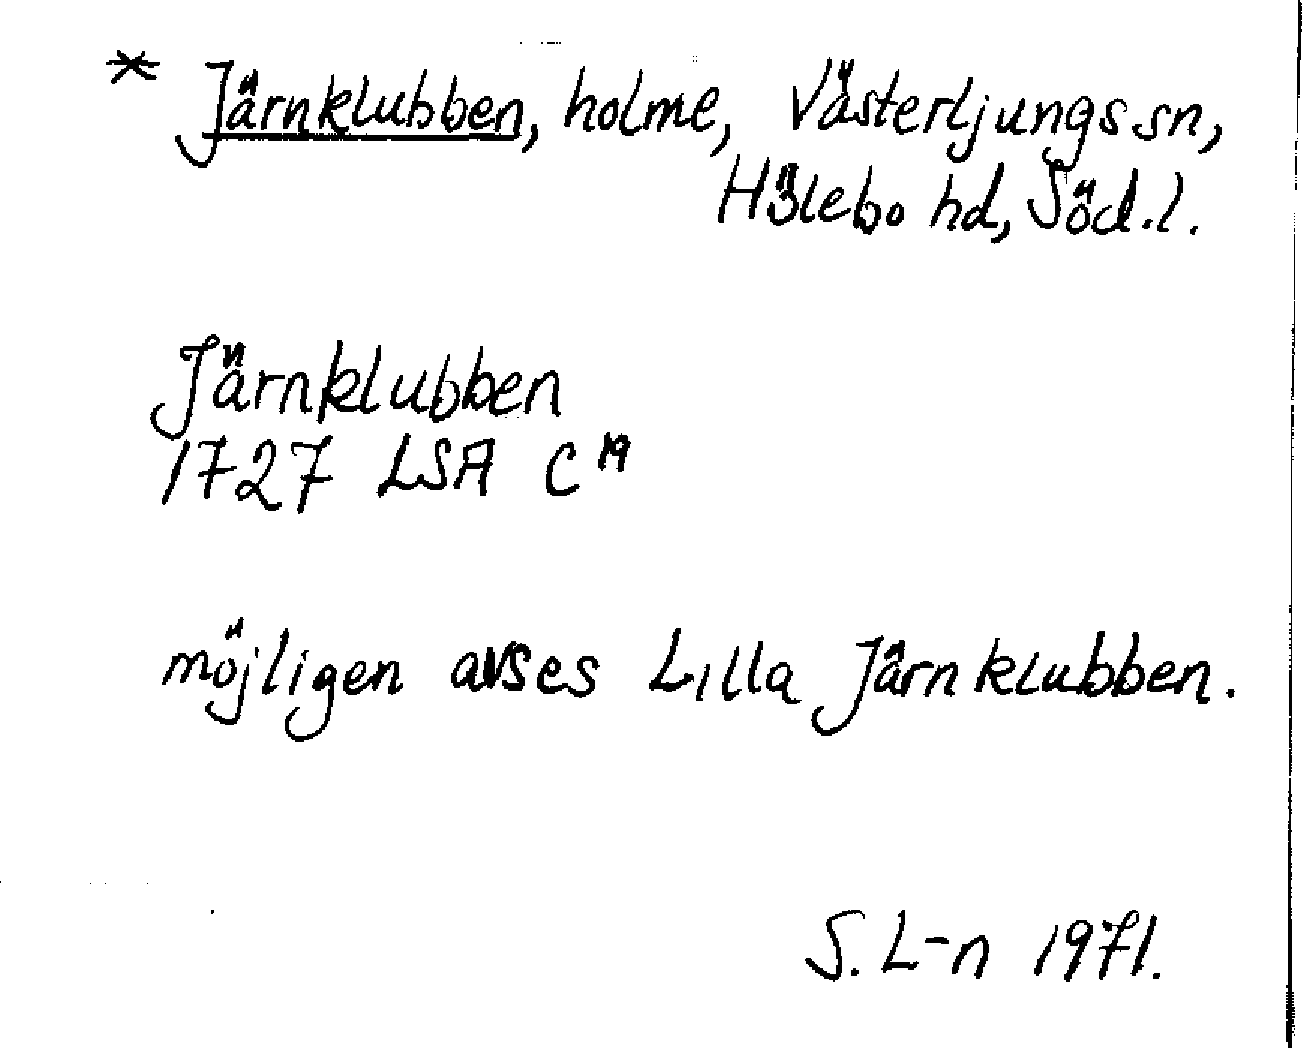 * Järnklubben, holme, Västerljungs sn,
Hölebo hd, Söd.l.
Järnklubben
1727 LSA C 19
möjligen avses Lilla Järnklubben.
S. L-n 1971.